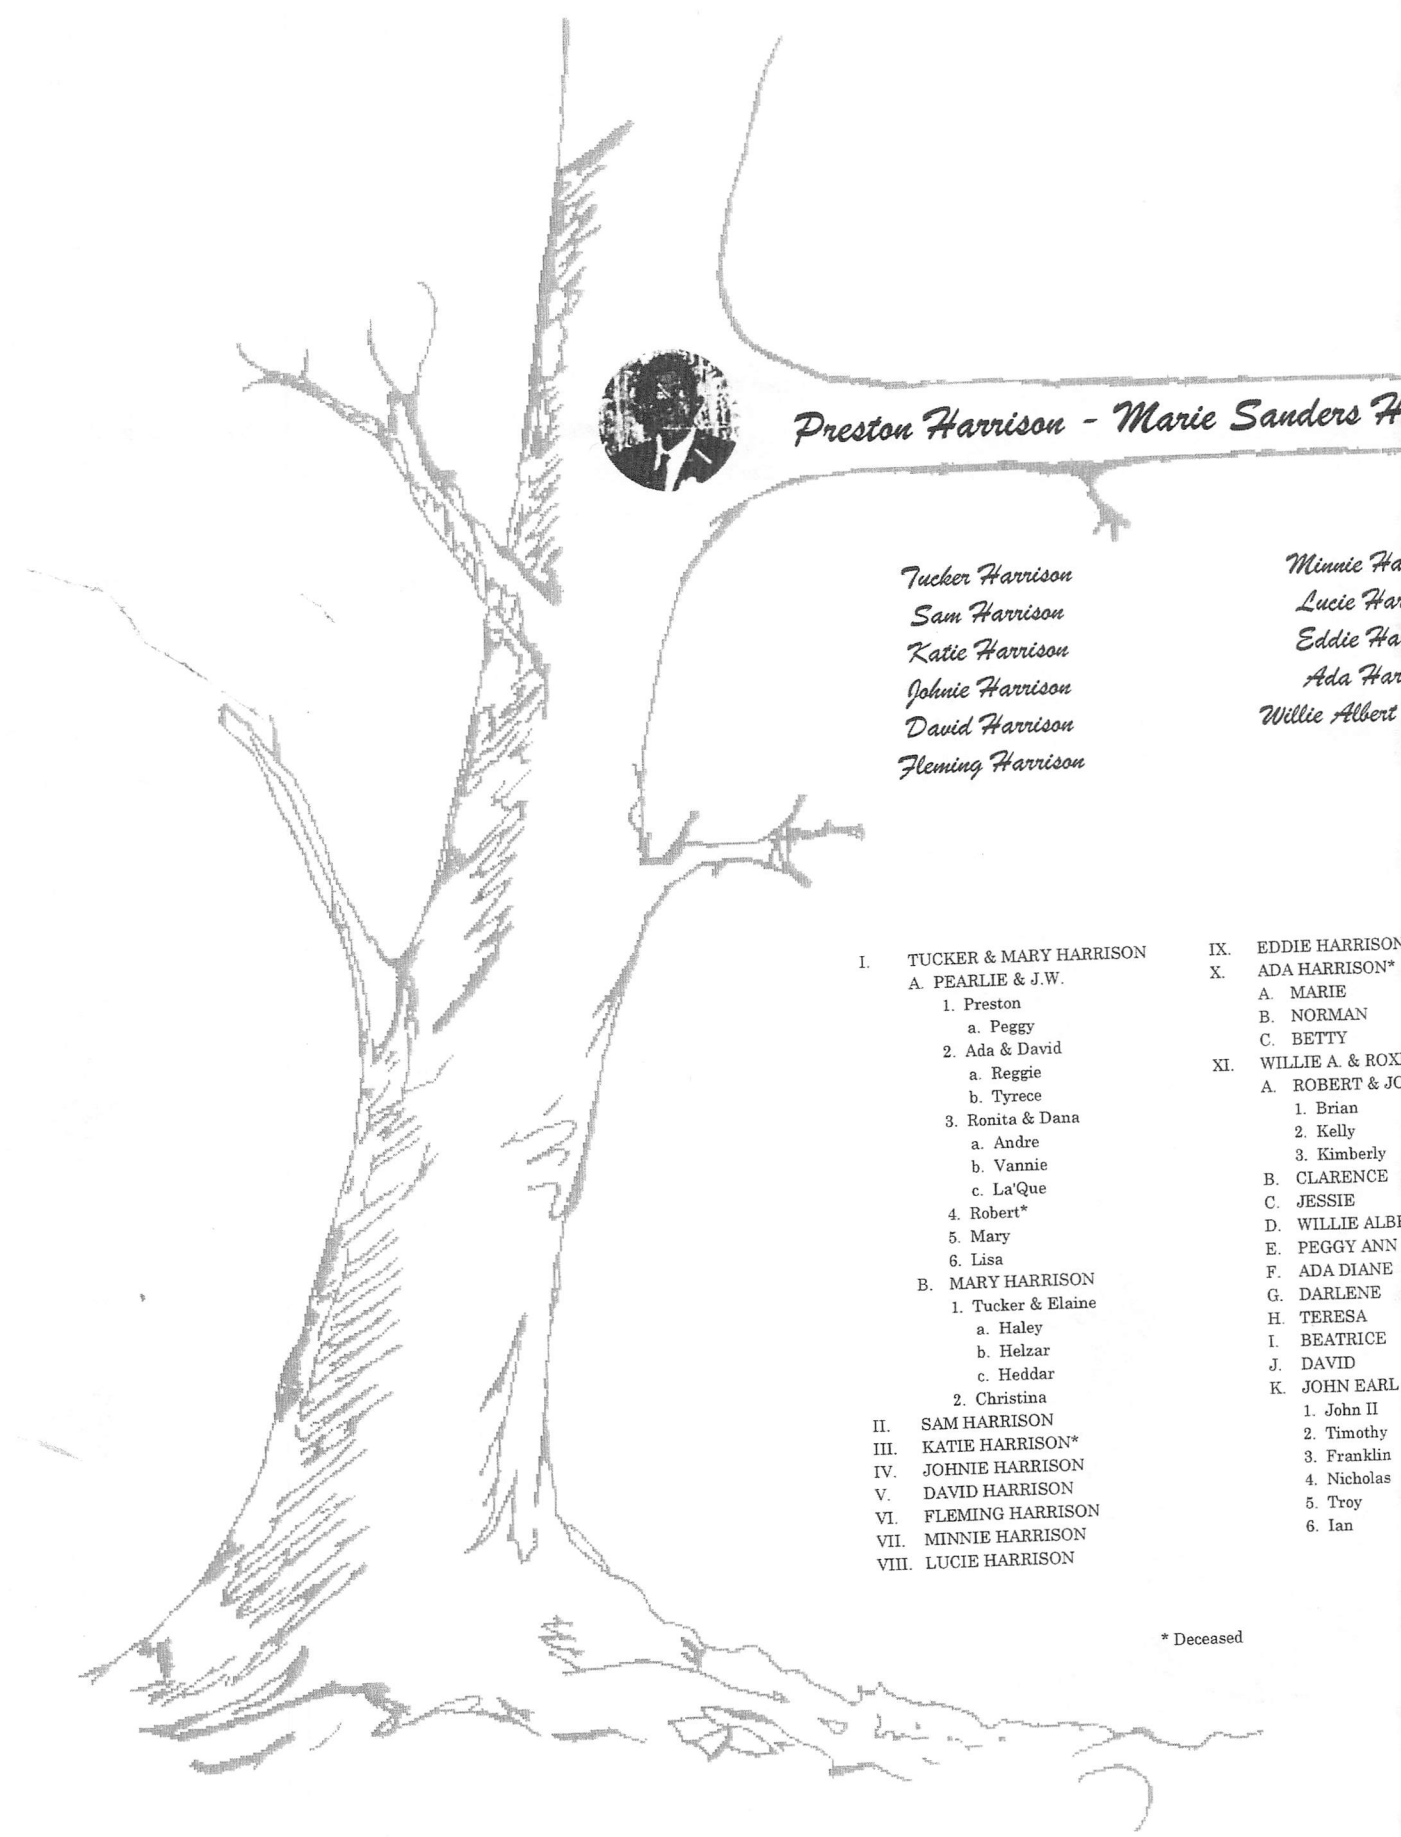 Preston Harrison - Marie Sanders H
Tucker Harrison
Sam Harrison
Katie Harrison
Johnie Harrison
David Harrison
Fleming Harrison
Minnie Ha
Lucie Har
Eddie Ha
Ada Har
Willie Albert
I. TUCKER & MARY HARRISON
A. PEARLIE & J.W.
1. Preston
a. Peggy
2. Ada & David
a. Reggie
b. Tyrece
3. Ronita & Dana
a. Andre
b. Vannie
c. La'Que
4. Robert*
5. Mary
6. Lisa
B. MARY HARRISON
1. Tucker & Elaine
a. Haley
b. Helzar
c. Heddar
2. Christina
II. SAM HARRISON
III. KATIE HARRISON*
IV. JOHNIE HARRISON
V. DAVID HARRISON
VI. FLEMING HARRISON
VII. MINNIE HARRISON
VIII. LUCIE HARRISON
IX. EDDIE HARRISON
X. ADA HARRISON*
A. MARIE
B. NORMAN
C. BETTY
XI. WILLIE A. & ROX
A. ROBERT & JO
1. Brian
2. Kelly
3. Kimberly
B. CLARENCE
C. JESSIE
D. WILLIE ALB
E. PEGGY ANN
F. ADA DIANE
G. DARLENE
H. TERESA
I. BEATRICE
J. DAVID
K. JOHN EARL
1. John II
2. Timothy
3. Franklin
4. Nicholas
5. Troy
6. Ian
* Deceased